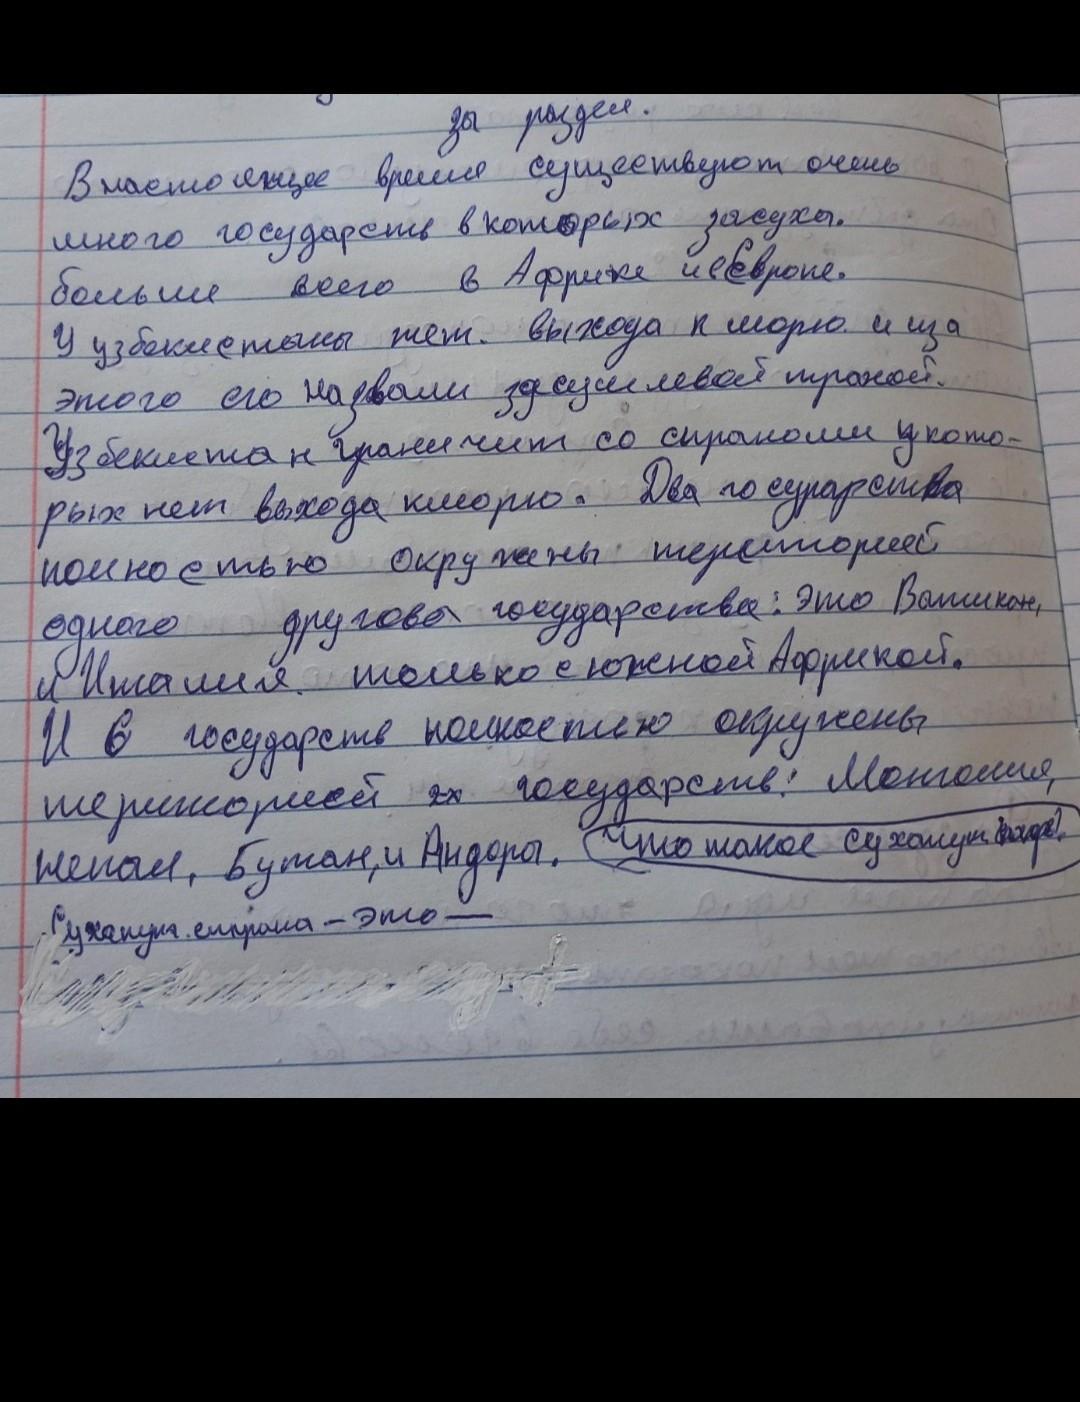 зы раздел.
В настоящее время существуют очень
много государств в которых засуха.
больше всего в Африке и Европе.
У узбекистаны нет. выхода к морю. и иза
этого его назвали засушлевой траной.
Узбекистан граничит со странами у кото-
рых нет выхода кморю. Два госурарства
полностью окружены тереторией
одного другова государства: это Ватикан,
и Италия. только с южной Африкой.
И 6 государств полностью окружены
територией 2х государств: Монголия,
Непал, Бутан, и Андора. Что такое сухапут.
Сухапутн. страна – это —